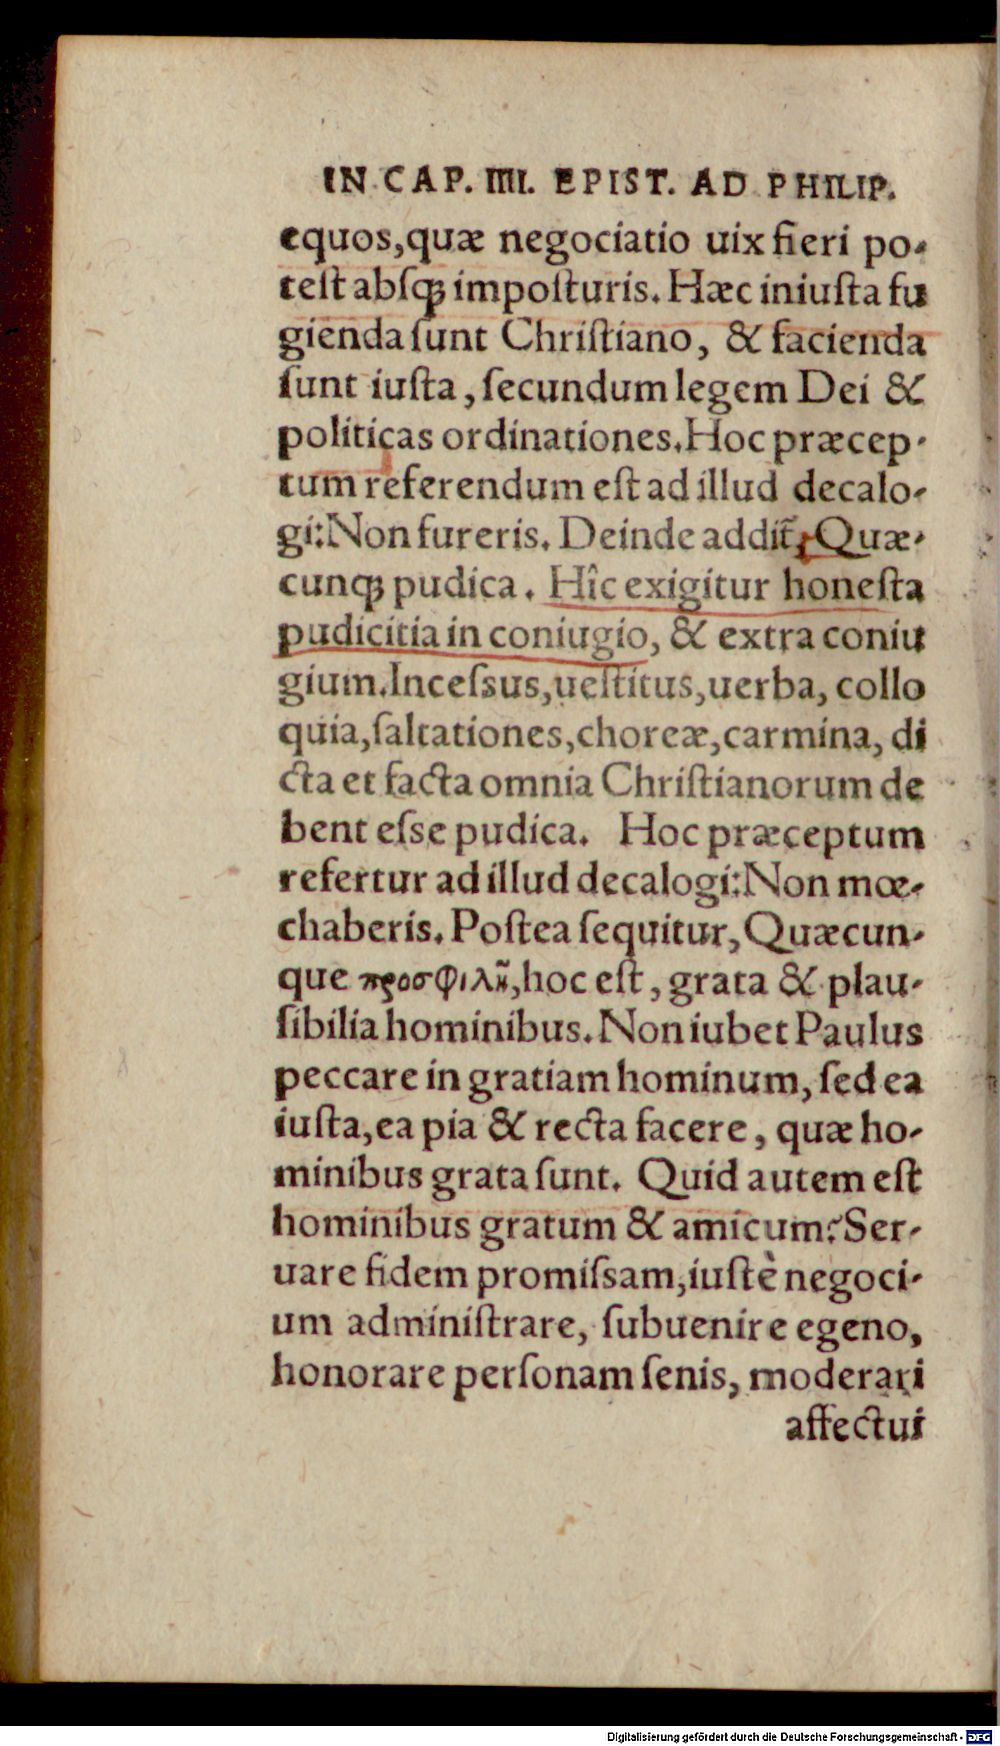 IN CAP. IIII. EPIST. AD PHILIP.
equos, quæ negociatio uix fieri po-
test absq; imposturis. Hæc iniusta fu
gienda sunt Christiano, & facienda
sunt iusta, secundum legem Dei &
politicas ordinationes. Hoc præcep-
tum referendum est ad illud decalo-
gi: Non fureris. Deinde addit̃, Quæ-
cunq; pudica. Hîc exigitur honesta
pudicitia in coniugio, & extra coniu
gium. Incessus, uestitus, uerba, collo
quia, saltationes, choreæ, carmina, di
cta et facta omnia Christianorum de
bent esse pudica. Hoc præceptum
refertur ad illud decalogi: Non mœ-
chaberis. Postea sequitur, Quæcun-
que προσφιλῆ, hoc est, grata & plau-
sibilia hominibus. Non iubet Paulus
peccare in gratiam hominum, sed ea
iusta, ea pia & recta facere, quæ ho-
minibus grata sunt. Quid autem est
hominibus gratum & amicum? Ser-
uare fidem promissam, iustè negoci-
um administrare, subuenire egeno,
honorare personam senis, moderari
affectui
Digitalisierung gefördert durch die Deutsche Forschungsgemeinschaft - DFG